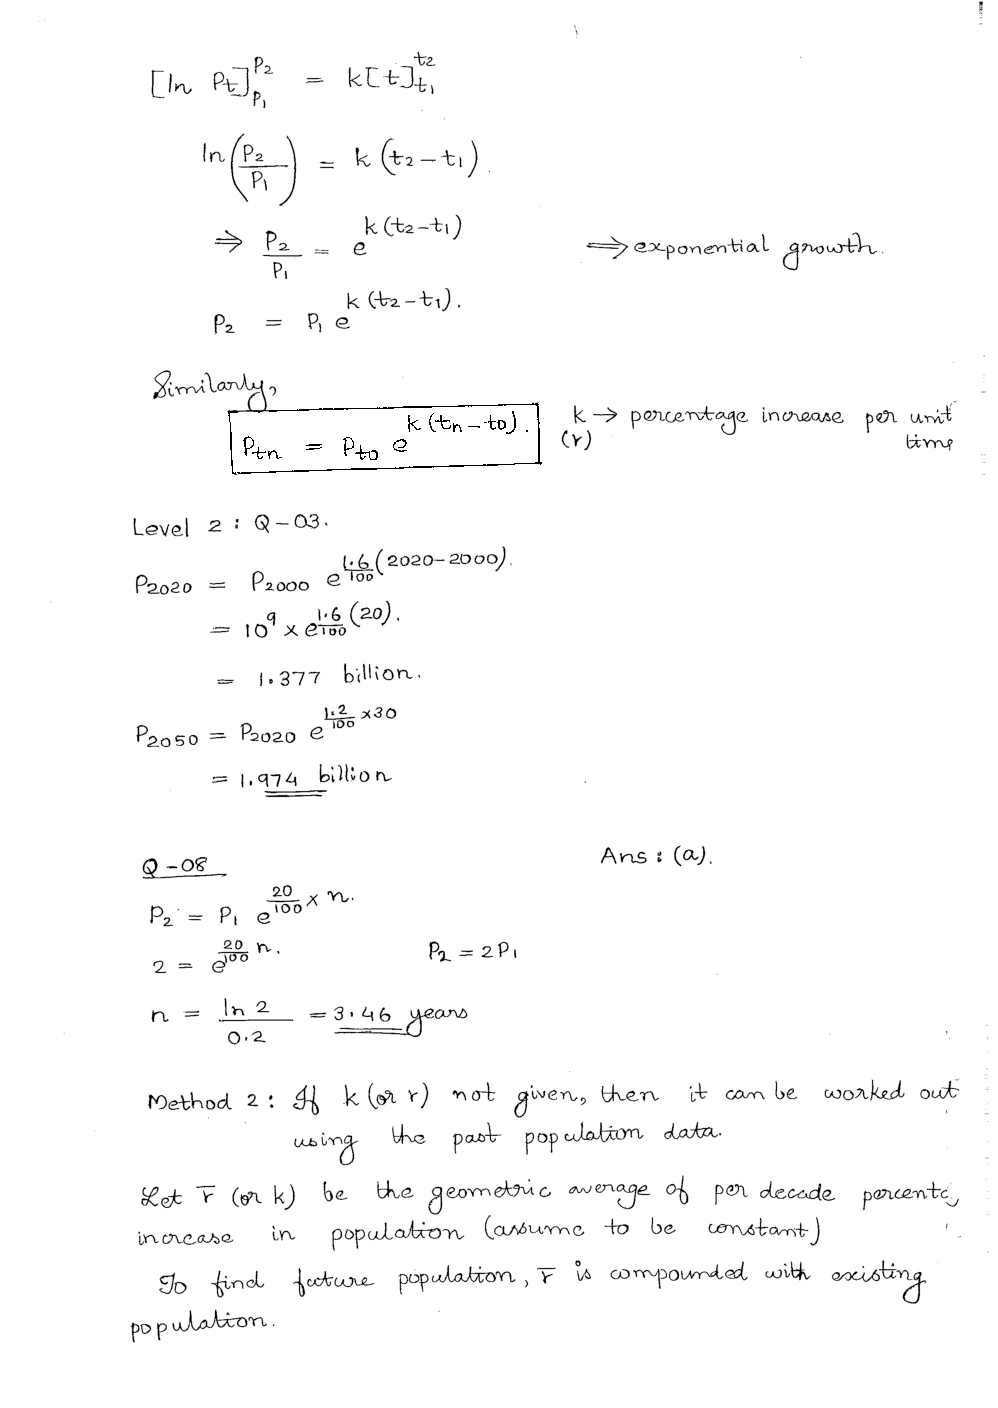 [ln Pt]P₁^P₂ = k[t]t₁^t₂
ln(P₂/P₁) = k(t₂-t₁).
⇒ P₂/P₁ = e^k(t₂-t₁) ⇒ exponential growth.
P₂ = P₁ e^k(t₂-t₁).
Similarly,
Ptn = Pt₀ e^k(tn-t₀). k → percentage increase per unit
(r) time
Level 2 : Q-03.
P2020 = P2000 e^1.6/100(2020-2000).
= 10⁹ x e^1.6/100(20).
= 1.377 billion.
P2050 = P2020 e^1.2/100 x30
= 1.974 billion
Q-08 Ans : (a).
P₂ = P₁ e^20/100 x n.
2 = e^20/100 n. P₂ = 2P₁
n = ln 2/0.2 = 3.46 years
Method 2 : If k (or r) not given, then it can be worked out
using the past population data.
Let r̄ (or k) be the geometric average of per decade
increase in population (assume to be constant)
To find future population, r̄ is compounded with existing
population.